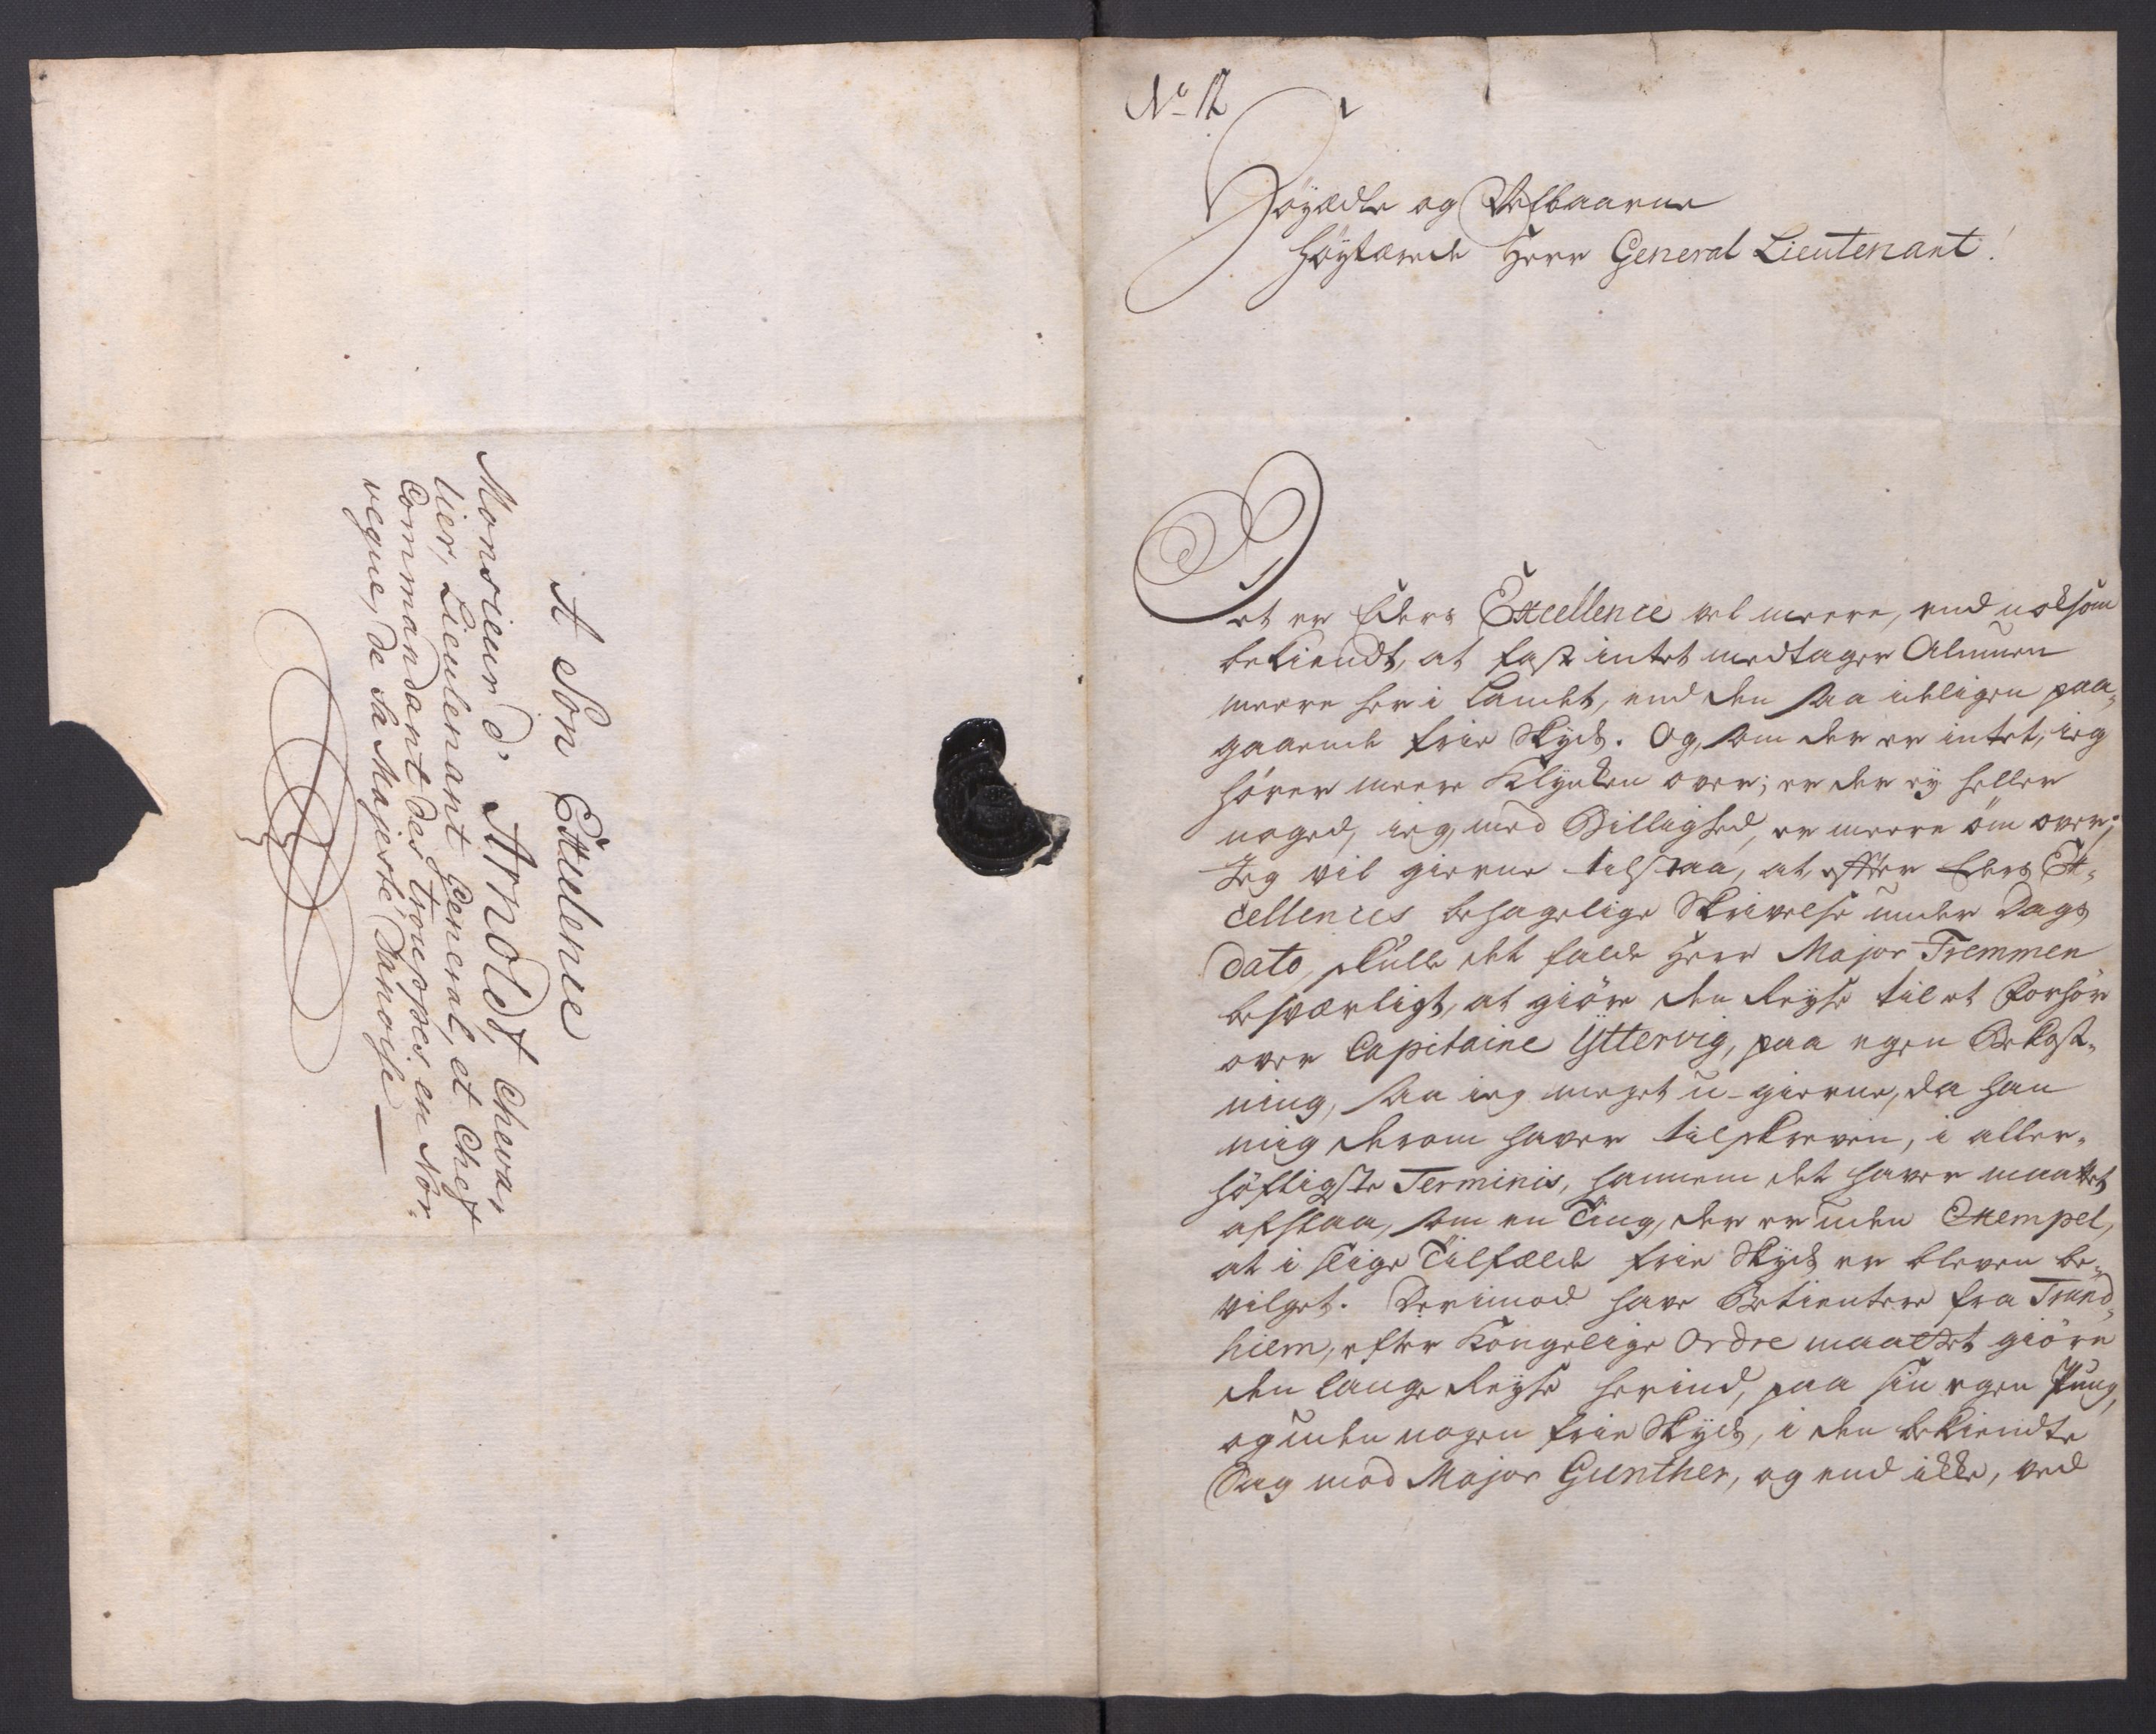 A Son Excellence
Monsieur d'Arnoldt, Cheva,
lier, Lieutenant General, et Chef
Commandant des trouppes en Nor-
vegue, de Sa Majesté Danoise
No 12
Høyædle og Velbaarne
Høystærede Herr General Lieutenant!
Det er Eders Excellence vel meere, end noksom
bekiendt, at fast intet medtager Almuen
meere her i Landet, end den saa ideligen paa-
gaaende frie Skyds. Og, som der er intet, ieg
hører meere Klynken over; er der ey heller
noget, ieg, med Billighed, er meere øm over;
Jeg vil gierne tilstaa, at efter Eders Ex-
cellences behagelige Skrivelse under Dags
Dato, skulle det falde Herr Major Fremmen
besværligt, at giøre den Reyse til et Forhør
over Capitaine Yttervig, paa egen Bekost-
ning, saa ieg meget u-gierne, da han
mig derom haver tilskreven, i aller-
høfligste Terminis, hannem det haver maattet
afslaa, som en Ting, der er uden Exempel,
at i slige Tilfælde frie Skyds er bleven be-
vilget. Derimod have Betientere fra Trund-
hiem, efter Kongelige Ordre maattet giøre
den lange Reyse herind, paa sin egen Pung,
og uden nogen frie Skyds, i den bekiendte
Sag mod Major Gunther, og end ikke, ved